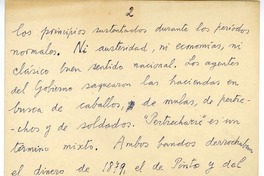 2
los principios sustentados durante los períodos
normales. Ni austeridad, ni economías, ni
clásico buen sentido nacional. Los agentes
del Gobierno saquearon las haciendas en
busca de caballos, de mulas, de pertre-
-chos y de soldados. "Pertrecharse" es un
término mixto. Ambos bandos derrochaban
el dinero de 1879, el de Pinto y del